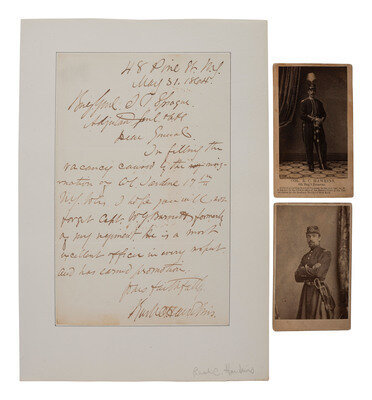 48 Pine St. N.Y.
May 31. 1864.
Brig Genl J. T. Sprague.
Adjutant Genl
Dear General
In filling the
vacancy caused by the resig-
nation of Col Jardine 17th
N.Y. Vols I hope you will not
forget Capt. W. G. Barnett formerly
of my regiment. He is a most
excellent officer in every respect
and has earned promotion.
Yours faithfully
Rush C. Hawkins.
COL. R. C. HAWKINS,
Rush C. Hawkins